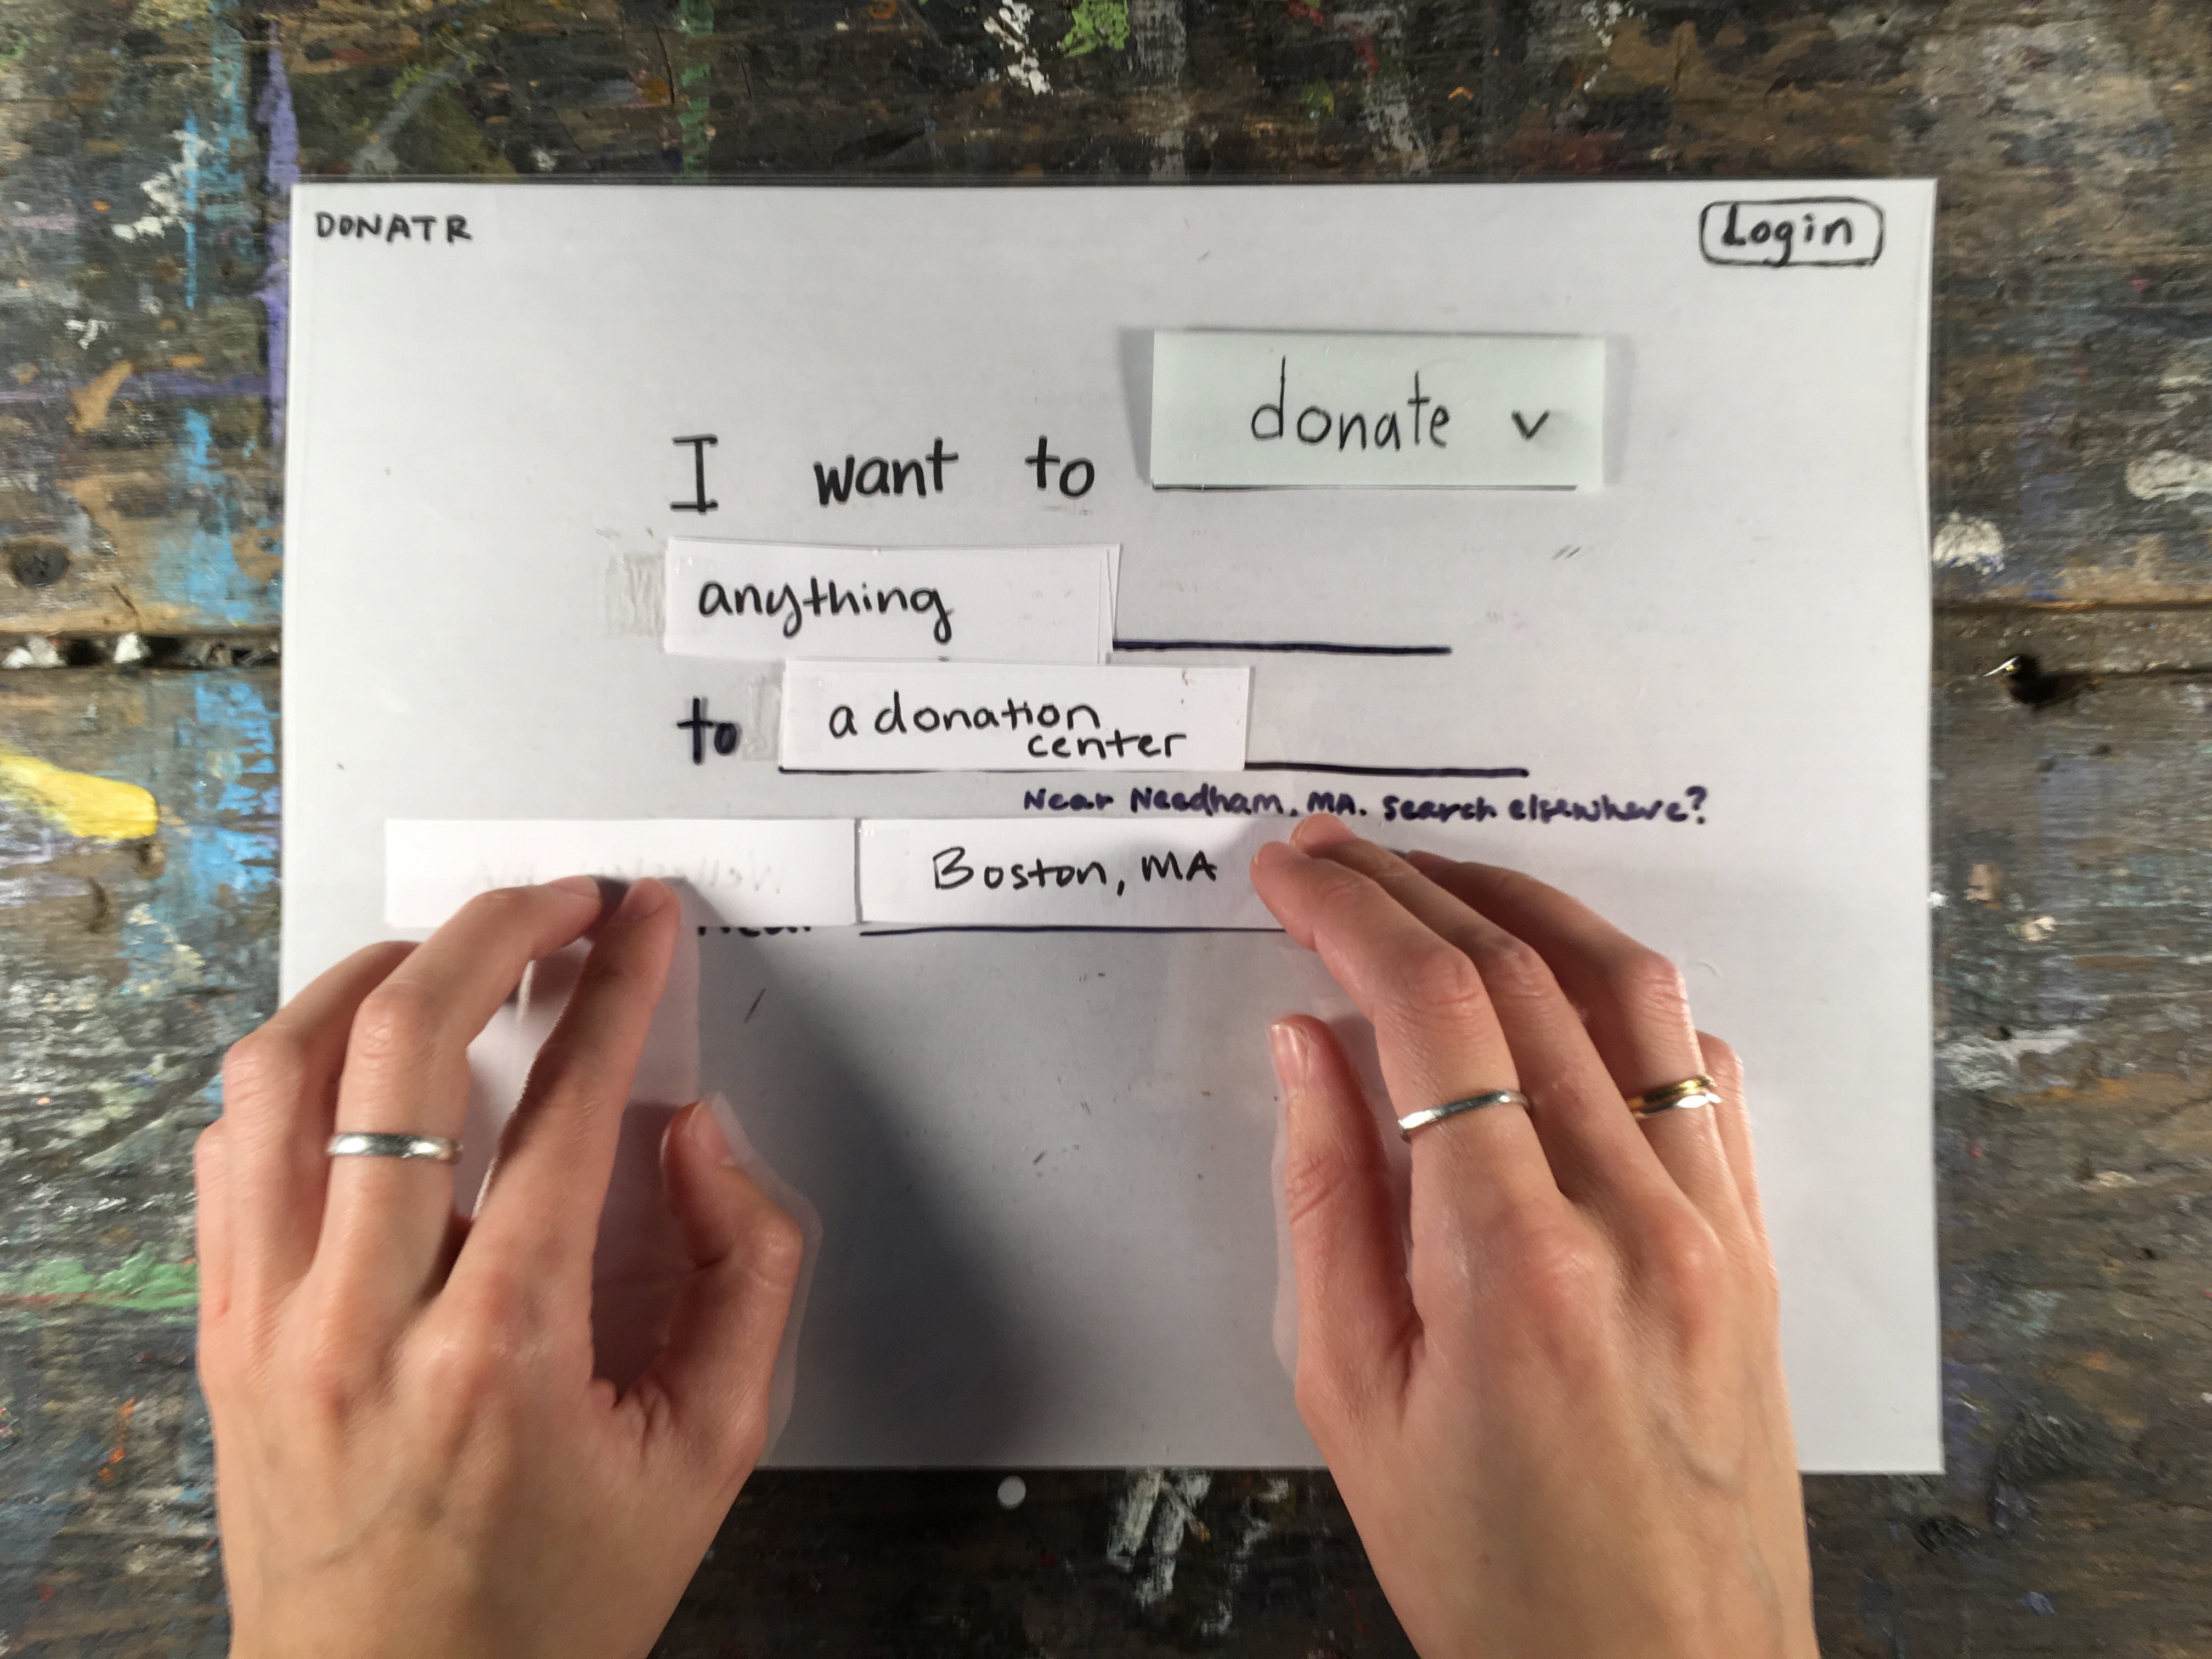 DONATR
Login
I want to donate v
anything
to a donation
center
Near Needham, MA. Search elsewhere?
Boston, MA